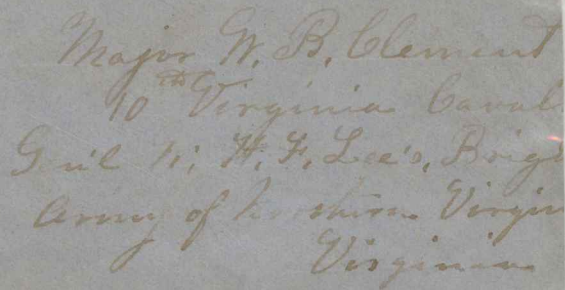 Major W. B. Clement
10th Virginia Caval
Gen'l W. H. F. Lee's, Brig
Army of Northern Virgin
Virginia